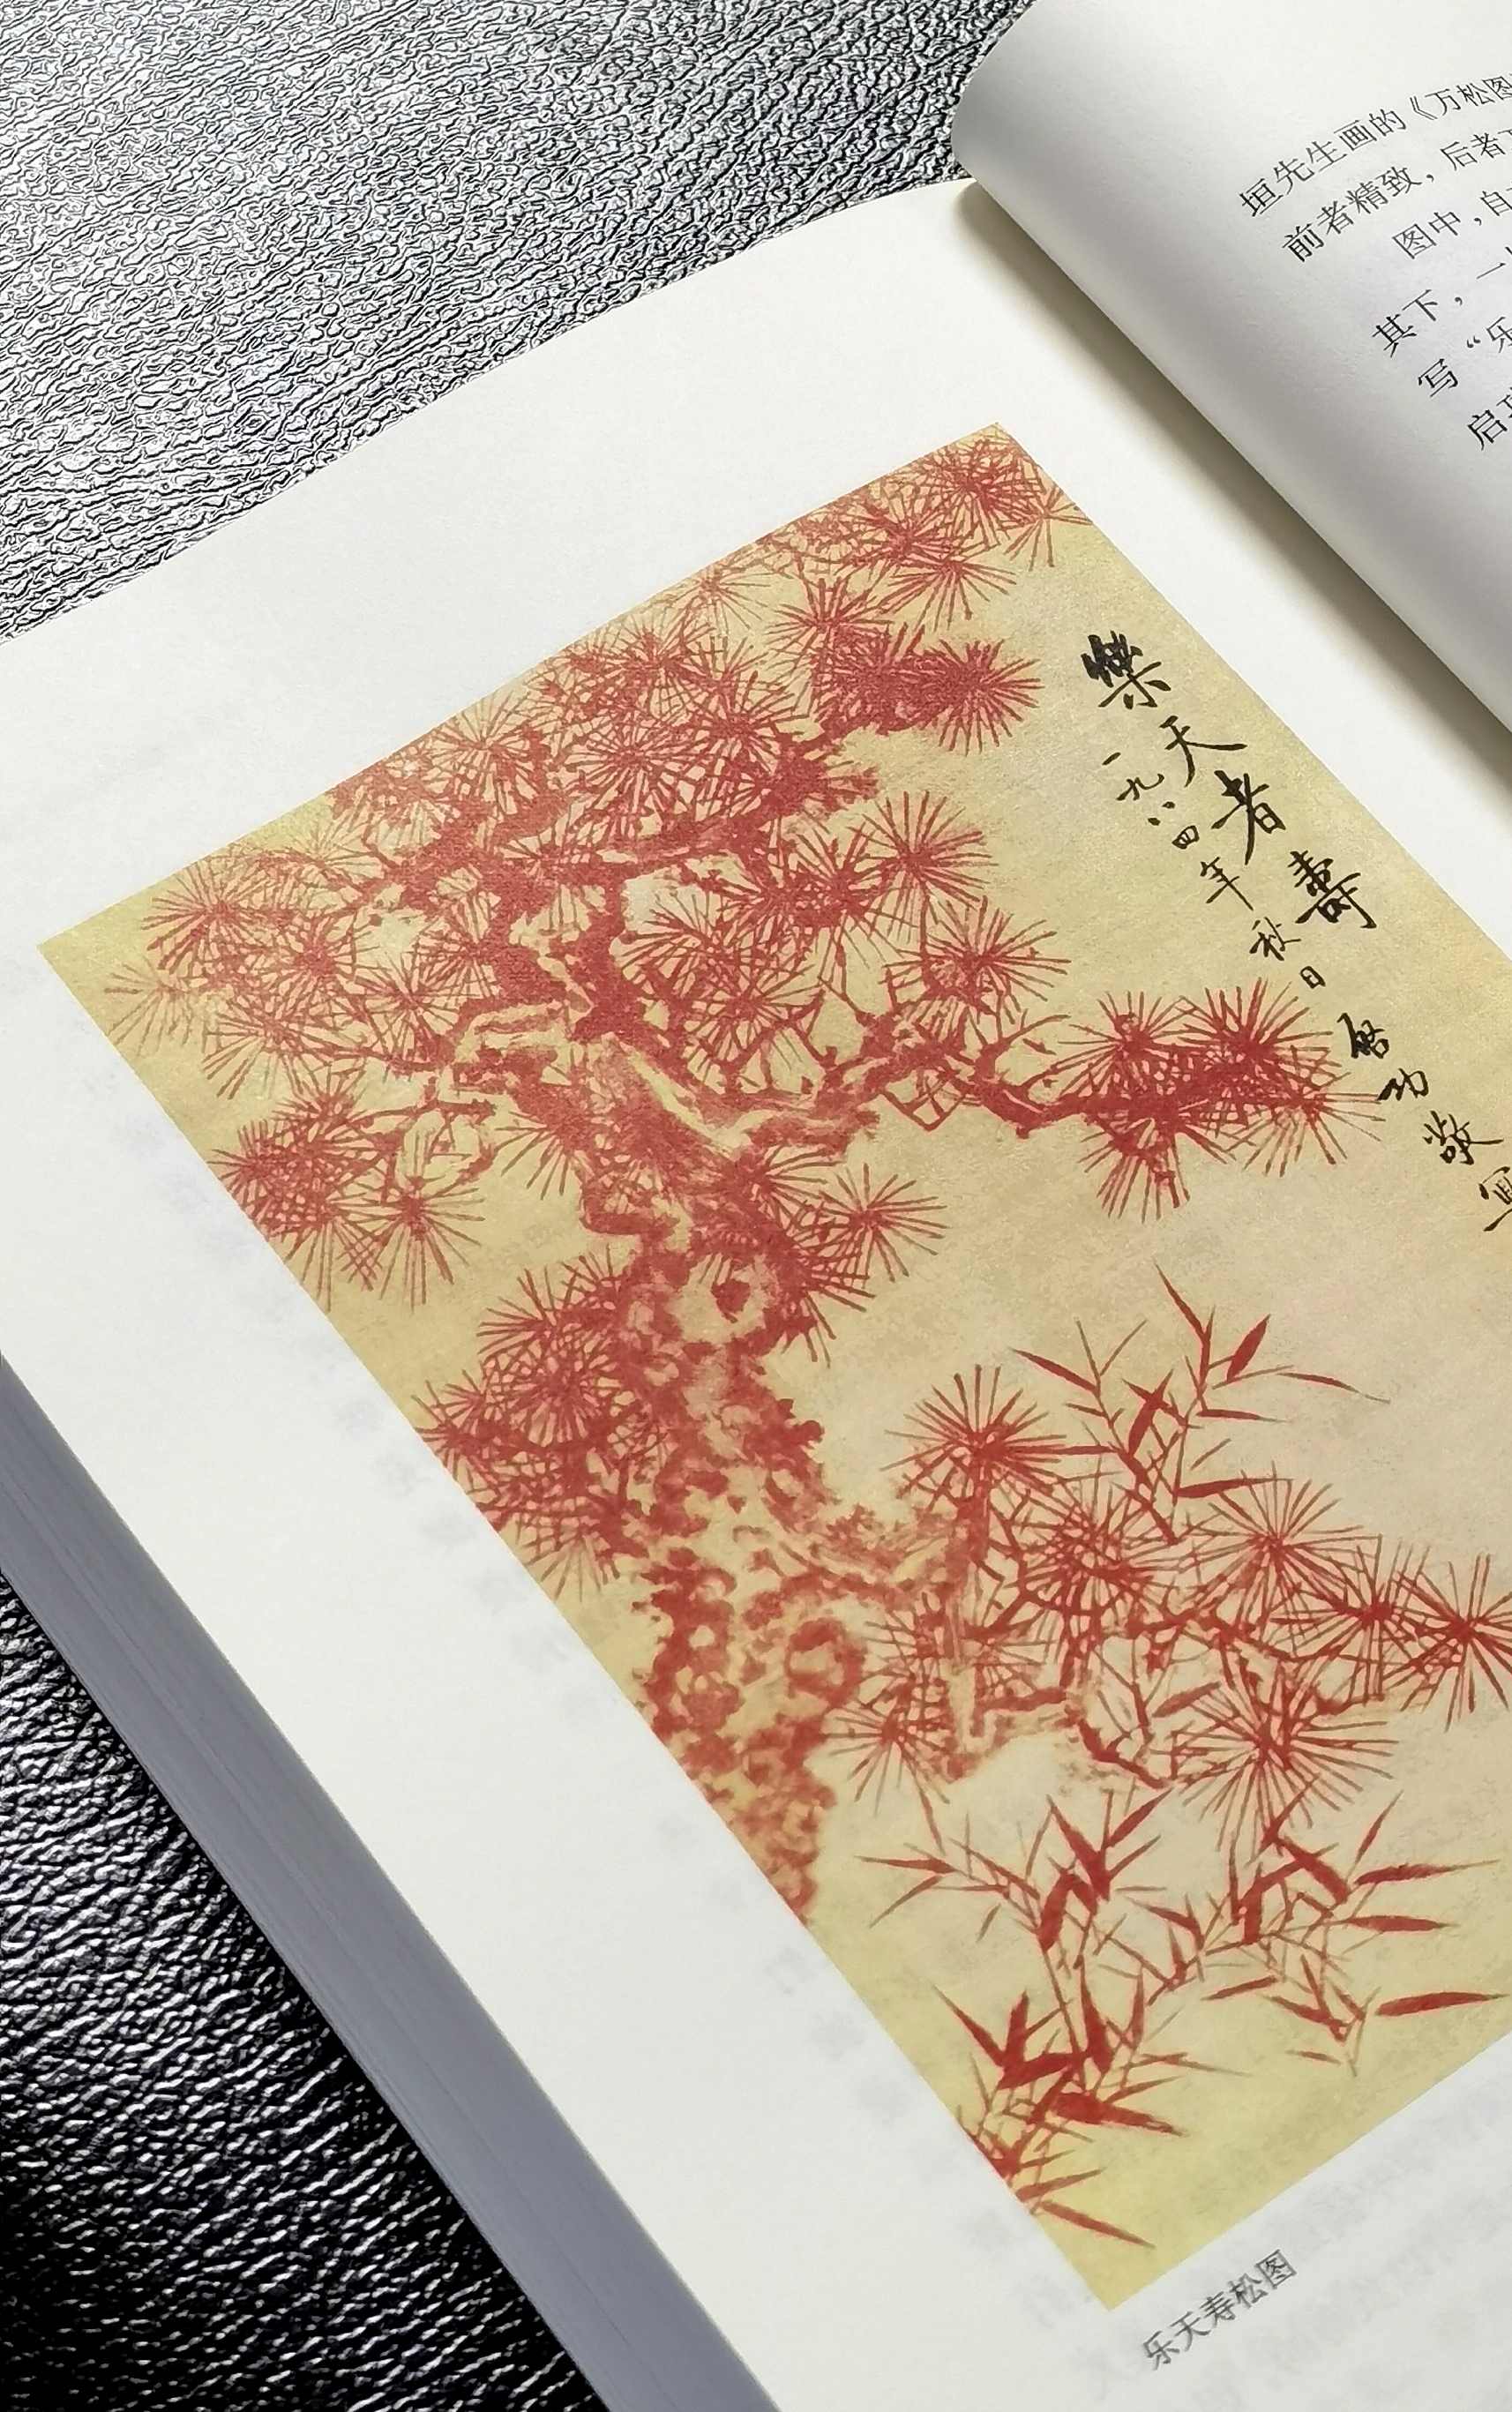 垣先生画的《万松图
前者精致，后者
图中，自
其下，一
写“乐
启功
樂天者壽
一九八四年秋日
啓功敬寫
乐天寿松图